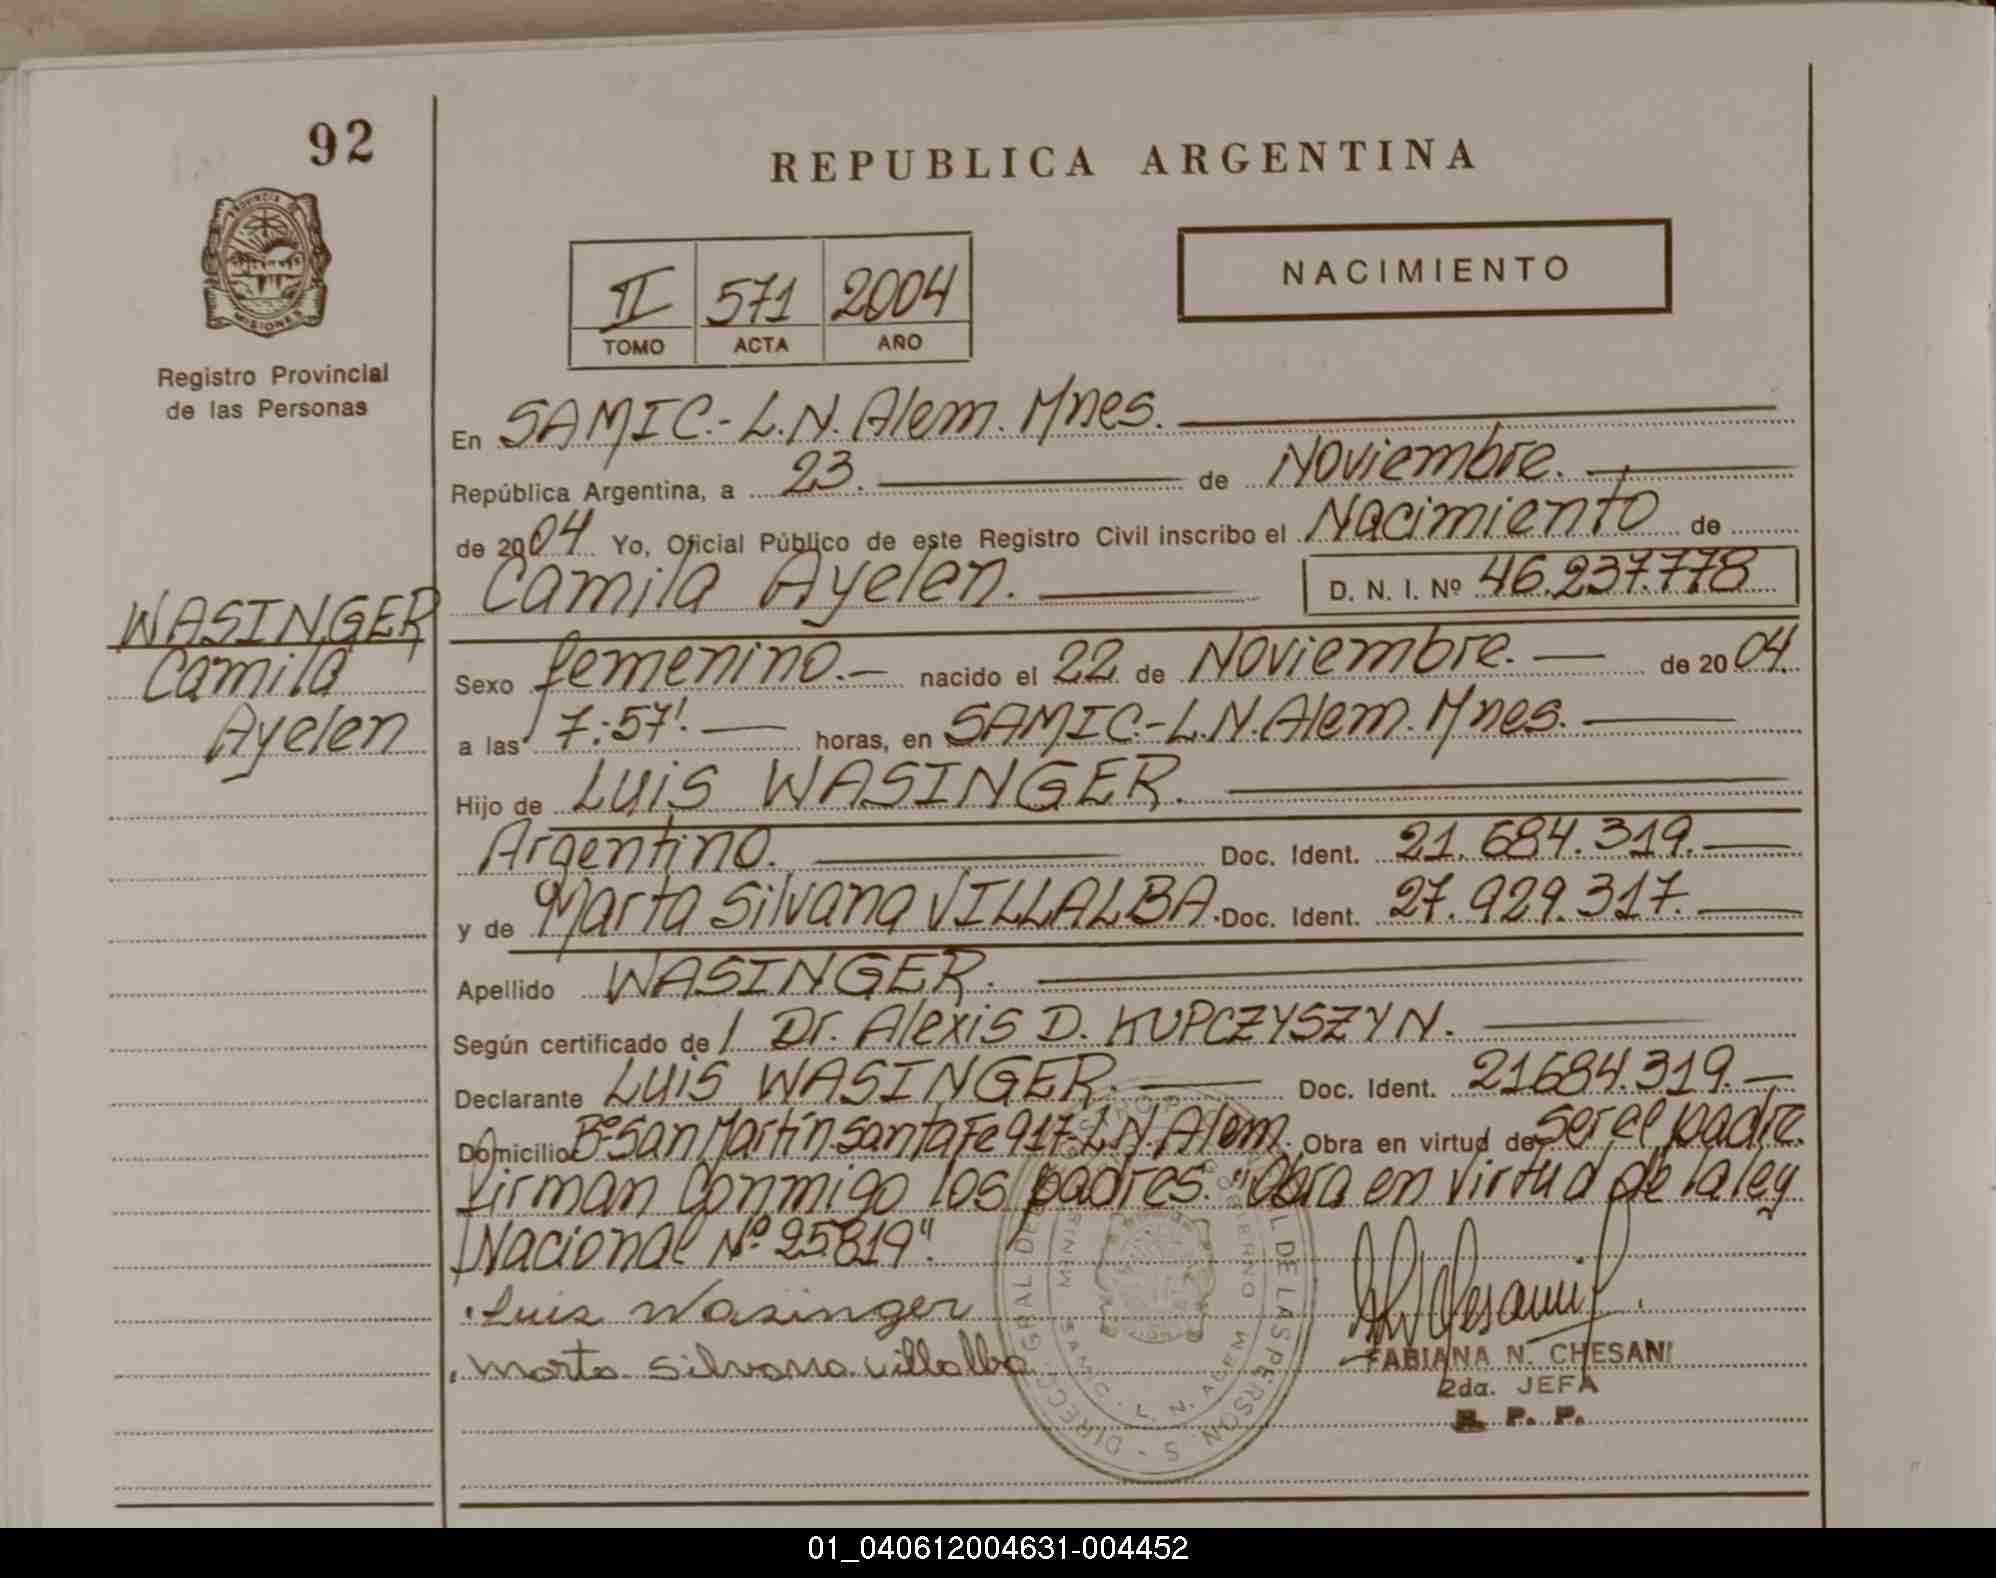 92
REPUBLICA ARGENTINA
PROVINCIA DE
MISIONES
Registro Provincial
de las Personas
II 571 2004
TOMO ACTA AÑO
NACIMIENTO
En SAMIC.-L.N.Alem.Mnes.
República Argentina, a 23. de Noviembre.
de 2004 Yo, Oficial Público de este Registro Civil inscribo el Nacimiento de
Camila Ayelen. D. N. I. Nº 46.237.778
WASINGER
Camila
Ayelen
Sexo femenino.- nacido el 22 de Noviembre. de 2004
a las 7:57'. horas, en SAMIC-L.N.Alem.Mnes.
Hijo de Luis WASINGER.
Argentino. Doc. Ident. 21.684.319.
y de Marta Silvana VILLALBA. Doc. Ident. 27.929.317.
Apellido WASINGER.
Según certificado de l Dr. Alexis D. KUPCZYSZYN.
Declarante Luis WASINGER. Doc. Ident. 21684.319.
Domicilio Bº San Martín.Santa Fe 917-L.N.Alem. Obra en virtud de ser el padre.
firman conmigo los padres. "Obra en virtud de la ley
Nacional Nº 25819".
Luis Wasinger
Marta Silvana Villalba
FABIANA N. CHESANI
2da. JEFA
R. P. P.
SAMIC. L. N. ALEM
01_040612004631-004452